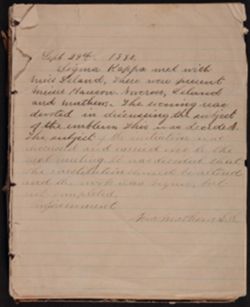 Sept 29th 1880.
Sigma Kappa met with
Miss Leland, There were present
Misses Hanson, Norcross, Leland
and Mathews. The evening was
devoted in discussing the subject
of the emblem. This was decided.
The subject of the initiation was
discussed and carried over to the
next meeting. It was decided that
the constitution should be revised
and the work was begun, but
not completed.
Adjournment